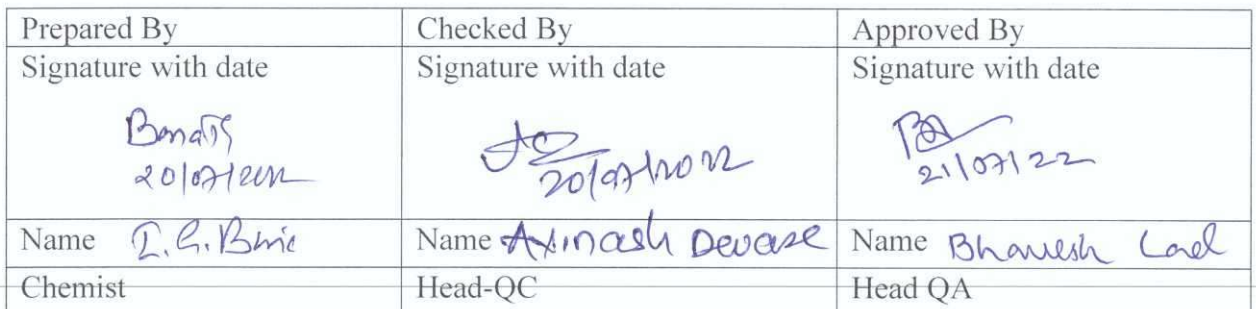 Prepared By Checked By Approved By
Signature with date Signature with date Signature with date
20/07/2022 20/07/2022 21/07/22
Name Name Avinash Devase Name Bhavesh Lad
Chemist Head-QC Head QA